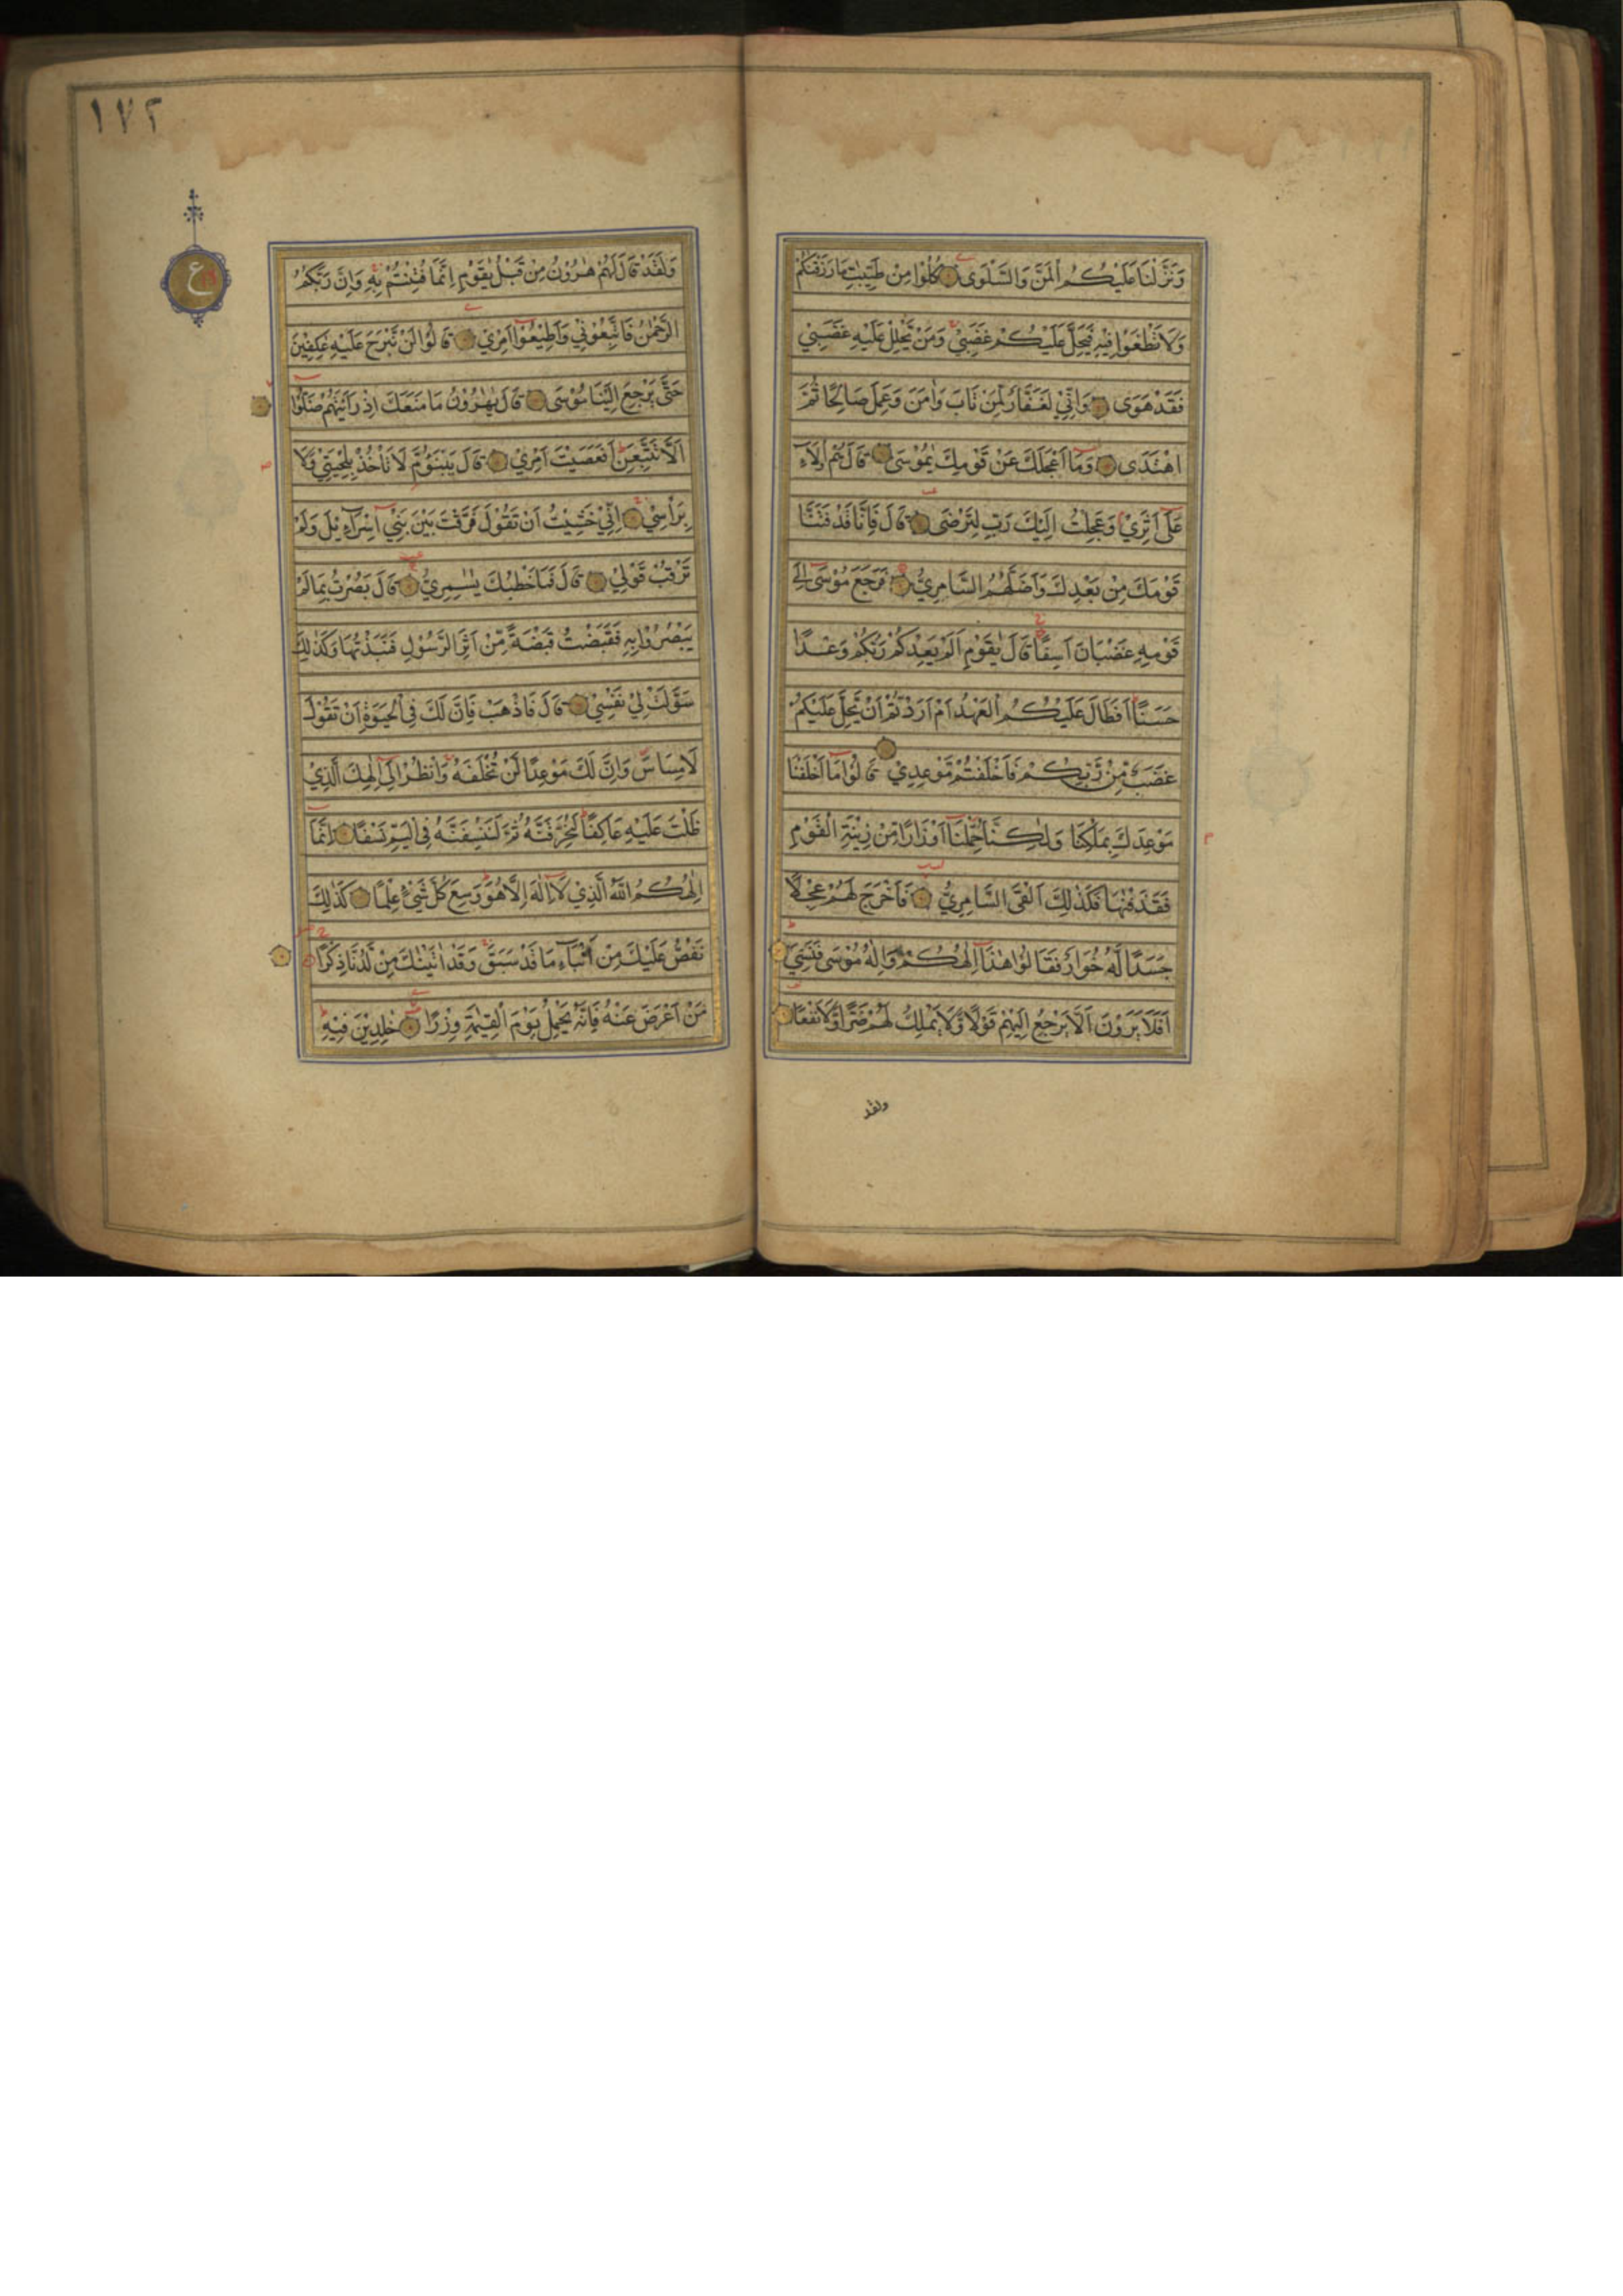 وَنَزَّلْنَا عَلَيْكُمُ الْمَنَّ وَالسَّلْوَى كُلُوْا مِنْ طَيِّبٰتِ مَا رَزَقْنٰكُمْ
وَلَا تَطْغَوْا فِيْهِ فَيَحِلَّ عَلَيْكُمْ غَضَبِيْ وَمَنْ يَحْلِلْ عَلَيْهِ غَضَبِيْ
فَقَدْ هَوَى وَاِنِّيْ لَغَفَّارٌ لِمَنْ تَابَ وَاٰمَنَ وَعَمِلَ صَالِحًا ثُمَّ
اهْتَدَى وَمَا اَعْجَلَكَ عَنْ قَوْمِكَ يٰمُوْسَى قَالَ هُمْ اُولَآءِ
عَلَى اَثَرِيْ وَعَجِلْتُ اِلَيْكَ رَبِّ لِتَرْضَى قَالَ فَاِنَّا قَدْ فَتَنَّا
قَوْمَكَ مِنْ بَعْدِكَ وَاَضَلَّهُمُ السَّامِرِيُّ فَرَجَعَ مُوْسَى اِلَى
قَوْمِهِ غَضْبَانَ اَسِفًا قَالَ يٰقَوْمِ اَلَمْ يَعِدْكُمْ رَبُّكُمْ وَعْدًا
حَسَنًا اَفَطَالَ عَلَيْكُمُ الْعَهْدُ اَمْ اَرَدْتُمْ اَنْ يَحِلَّ عَلَيْكُمْ
غَضَبٌ مِّنْ رَّبِّكُمْ فَاَخْلَفْتُمْ مَّوْعِدِيْ قَالُوْا مَا اَخْلَفْنَا
مَوْعِدَكَ بِمَلْكِنَا وَلٰكِنَّا حُمِّلْنَا اَوْزَارًا مِّنْ زِيْنَةِ الْقَوْمِ
فَقَذَفْنٰهَا فَكَذٰلِكَ اَلْقَى السَّامِرِيُّ فَاَخْرَجَ لَهُمْ عِجْلًا
جَسَدًا لَّهُ خُوَارٌ فَقَالُوْا هٰذَا اِلٰهُكُمْ وَاِلٰهُ مُوْسَى فَنَسِيَ
اَفَلَا يَرَوْنَ اَلَّا يَرْجِعُ اِلَيْهِمْ قَوْلًا وَّلَا يَمْلِكُ لَهُمْ ضَرًّا وَّلَا نَفْعًا
ولقد
١٧٢
ع
وَلَقَدْ قَالَ لَهُمْ هٰرُوْنُ مِنْ قَبْلُ يٰقَوْمِ اِنَّمَا فُتِنْتُمْ بِهِ وَاِنَّ رَبَّكُمُ
الرَّحْمٰنُ فَاتَّبِعُوْنِيْ وَاَطِيْعُوْا اَمْرِيْ قَالُوْا لَنْ نَّبْرَحَ عَلَيْهِ عٰكِفِيْنَ
حَتّٰى يَرْجِعَ اِلَيْنَا مُوْسَى قَالَ يٰهٰرُوْنُ مَا مَنَعَكَ اِذْ رَاَيْتَهُمْ ضَلُّوْا
اَلَّا تَتَّبِعَنِ اَفَعَصَيْتَ اَمْرِيْ قَالَ يَبْنَؤُمَّ لَا تَأْخُذْ بِلِحْيَتِيْ وَلَا
بِرَأْسِيْ اِنِّيْ خَشِيْتُ اَنْ تَقُوْلَ فَرَّقْتَ بَيْنَ بَنِيْ اِسْرَآءِيْلَ وَلَمْ
تَرْقُبْ قَوْلِيْ قَالَ فَمَا خَطْبُكَ يٰسٰمِرِيُّ قَالَ بَصُرْتُ بِمَا لَمْ
يَبْصُرُوْا بِهِ فَقَبَضْتُ قَبْضَةً مِّنْ اَثَرِ الرَّسُوْلِ فَنَبَذْتُهَا وَكَذٰلِكَ
سَوَّلَتْ لِيْ نَفْسِيْ قَالَ فَاذْهَبْ فَاِنَّ لَكَ فِي الْحَيٰوةِ اَنْ تَقُوْلَ
لَا مِسَاسَ وَاِنَّ لَكَ مَوْعِدًا لَنْ تُخْلَفَهُ وَانْظُرْ اِلٰى اِلٰهِكَ الَّذِيْ
ظَلْتَ عَلَيْهِ عَاكِفًا لَنُحَرِّقَنَّهُ ثُمَّ لَنَنْسِفَنَّهُ فِي الْيَمِّ نَسْفًا اِنَّمَا
اِلٰهُكُمُ اللّٰهُ الَّذِيْ لَا اِلٰهَ اِلَّا هُوَ وَسِعَ كُلَّ شَيْءٍ عِلْمًا كَذٰلِكَ
نَقُصُّ عَلَيْكَ مِنْ اَنْبَآءِ مَا قَدْ سَبَقَ وَقَدْ اٰتَيْنٰكَ مِنْ لَّدُنَّا ذِكْرًا
مَنْ اَعْرَضَ عَنْهُ فَاِنَّهُ يَحْمِلُ يَوْمَ الْقِيٰمَةِ وِزْرًا خٰلِدِيْنَ فِيْهِ